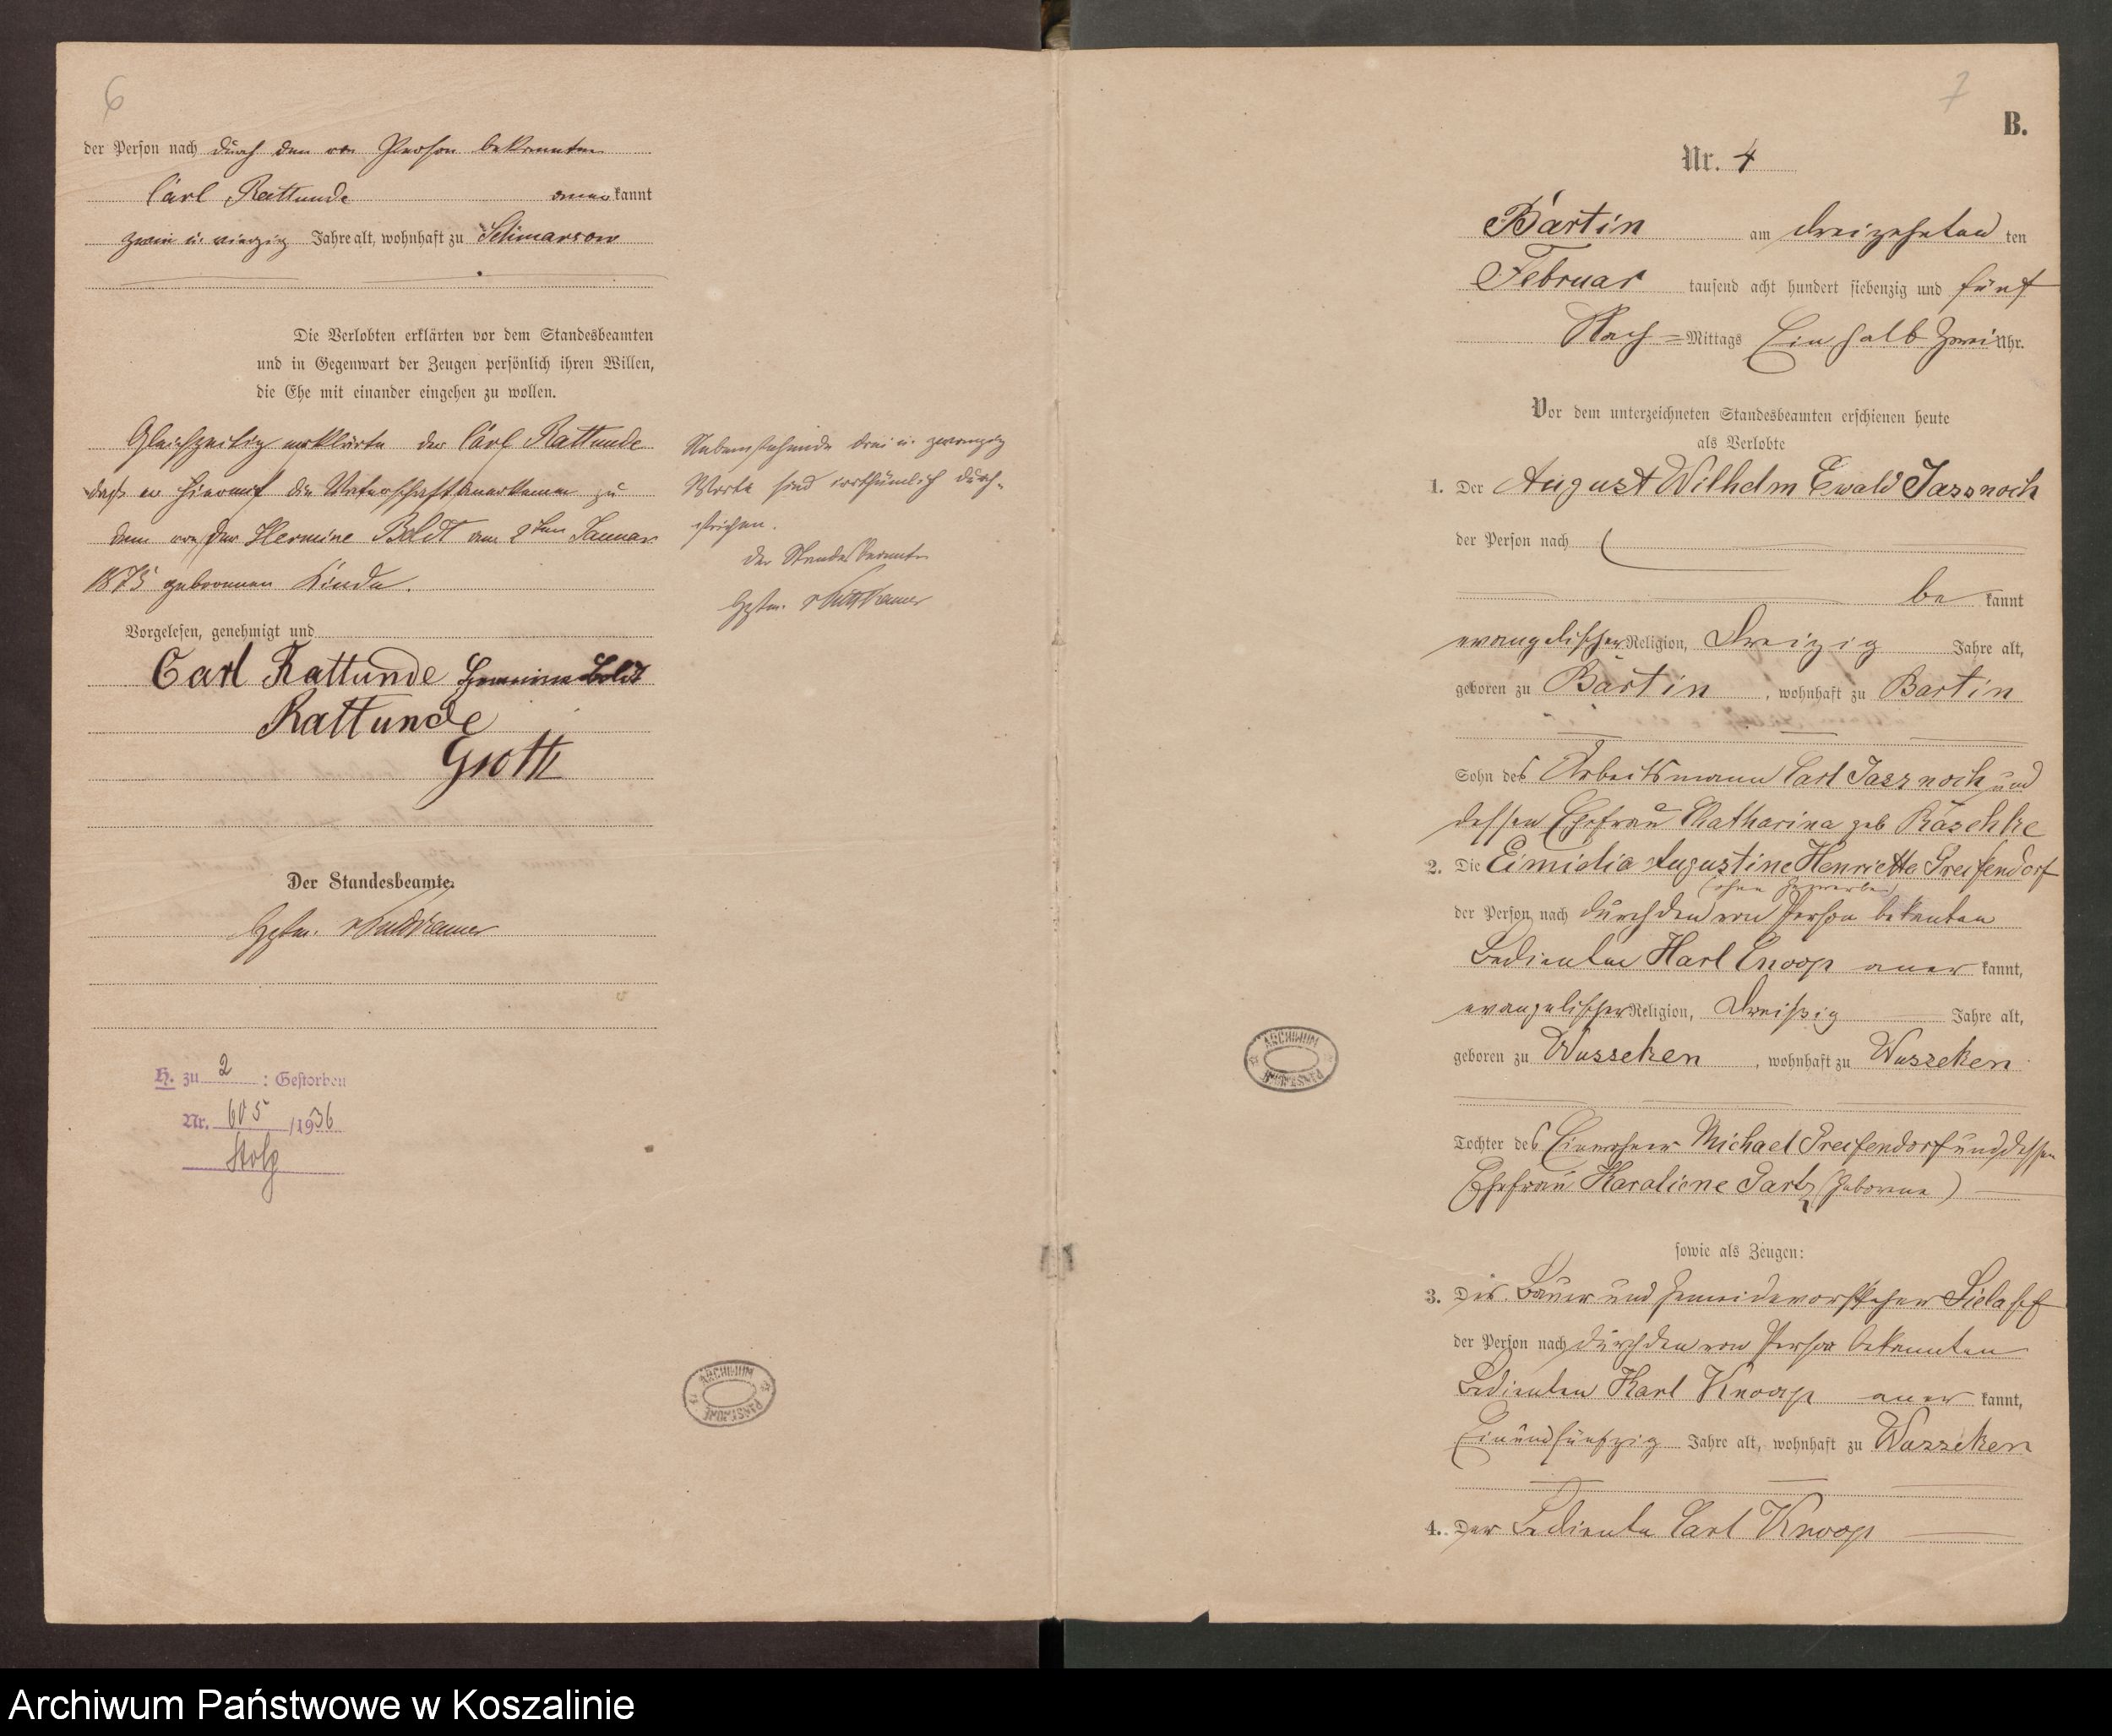 6
der Person nach durch den von Person bekannten
Carl Rattunde aner kannt
zwei u. vierzig Jahre alt, wohnhaft zu Schmarsow
Die Verlobten erklärten vor dem Standesbeamten
und in Gegenwart der Zeugen persönlich ihren Willen,
die Ehe mit einander eingehen zu wollen.
Gleichzeitig erklärte der Carl Rattunde
daß er hierauf die Vaterschaft anerkenne zu
dem von der Hermine Boldt am 2ten Januar
1875 geborenen Kinde.
Vorgelesen, genehmigt und
Carl Rattunde Hermine Boldt
Rattunde
Groth
Der Standesbeamte.
Hptm. v Puttkamer
H. zu 2 : Gestorben
Nr. 605 /1936
Stolp
Nebenstehende drei u. zwanzig
Worte sind irrthümlich durch-
strichen.
Der Standesbeamte
Hptm. v Puttkamer
ARCHIWUM PAŃSTWOWE
7
B.
Nr. 4
Bartin am dreizehnten ten
Februar tausend acht hundert siebenzig und fünf
Nach = Mittags Ein halb Zwei Uhr.
Vor dem unterzeichneten Standesbeamten erschienen heute
als Verlobte
1. Der August Wilhelm Ewald Jassnoch
der Person nach
be kannt
evangelischer Religion, Dreizig Jahre alt,
geboren zu Bartin, wohnhaft zu Bartin
Sohn des Arbeitsmann Carl Jassnoch und
dessen Ehefrau Katharina geb Raschke
2. Die Eimidia Augustine Henriette Greifendorf
(ohne Gewerbe)
der Person nach durch den von Person bekanten
Bedienten Karl Cnoop aner kannt,
evangelischer Religion, Dreißig Jahre alt,
geboren zu Wusseken, wohnhaft zu Wusseken
Tochter des Einwohner Michael Greifendorf und dessen
Ehefrau Karoliene (Geborene)
sowie als Zeugen:
3. Der Bauer und Gemeidevorsteher
der Person nach durch den von Person bekannten
Bedienten Karl Knoop aner kannt,
Einundfünfzig Jahre alt, wohnhaft zu Wusseken
4. Der Bediente Carl Knoop
ARCHIWUM PAŃSTWOWE
Archiwum Państwowe w Koszalinie